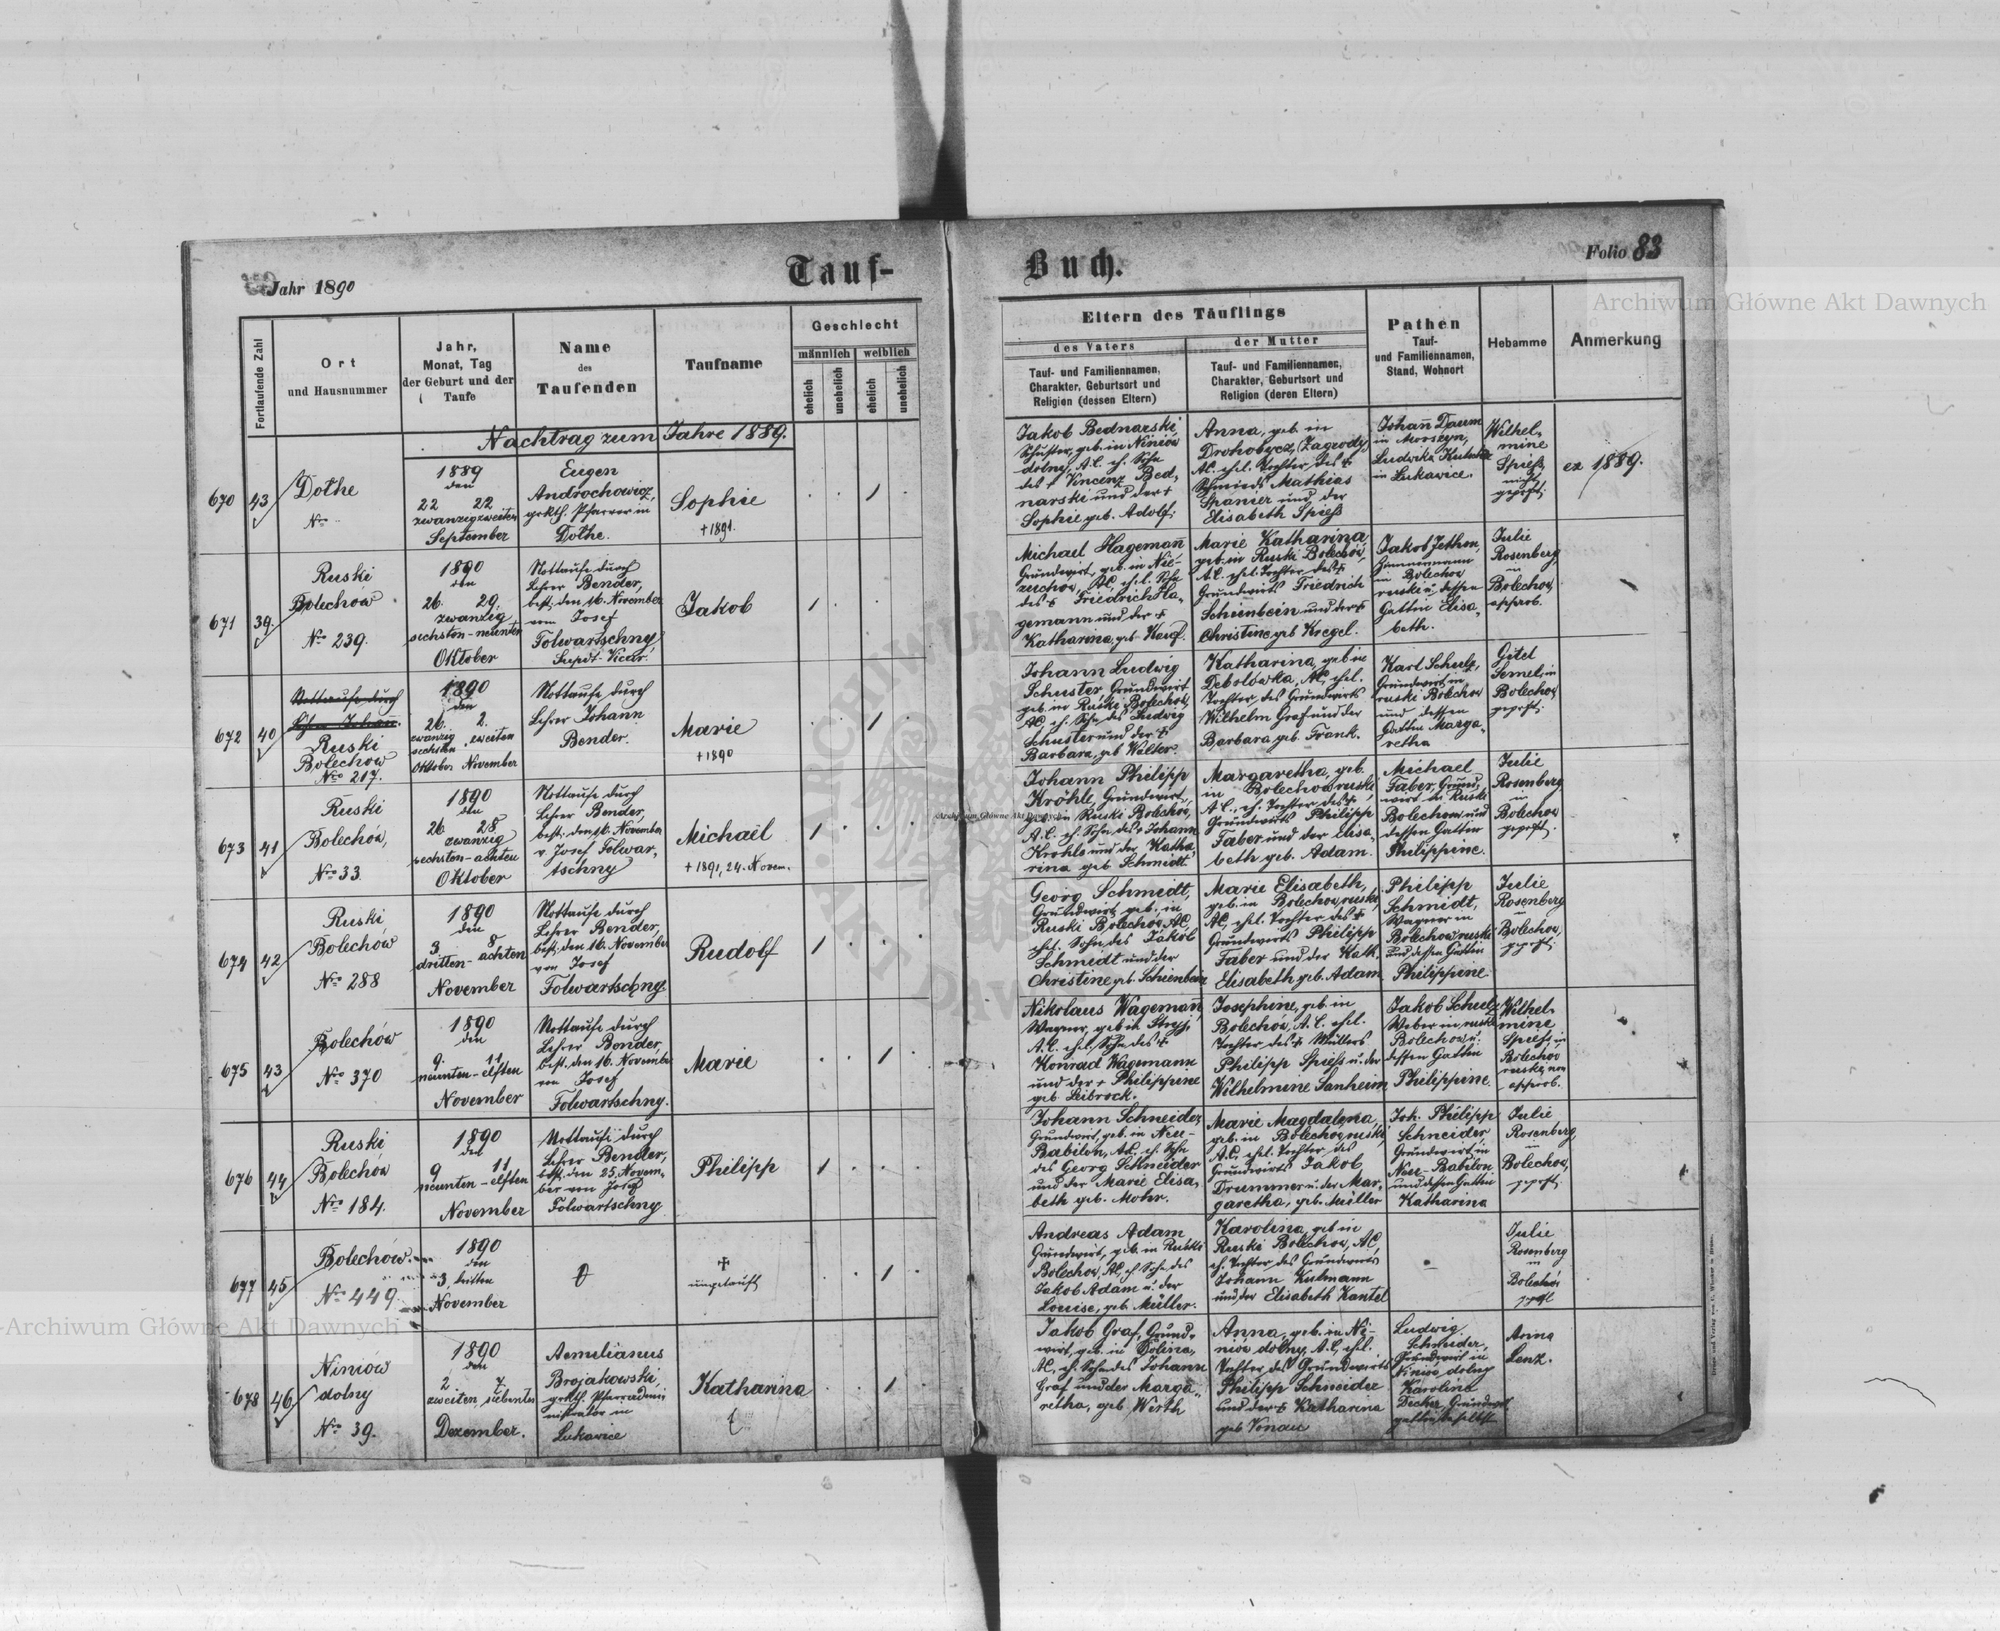 Jahr 1890
Tauf-
Buch.
Folio 83
Fortlaufende Zahl
Ort
und Hausnummer
Jahr,
Monat, Tag
der Geburt und der
Taufe
Name
des
Taufenden
Taufname
Geschlecht
männlich
weiblich
ehelich
unehelich
ehelich
unehelich
Eltern des Täuflings
des Vaters
Tauf- und Familiennamen,
Charakter, Geburtsort und
Religion (dessen Eltern)
der Mutter
Tauf- und Familiennamen,
Charakter, Geburtsort und
Religion (deren Eltern)
Pathen
Tauf-
und Familiennamen,
Stand, Wohnort
Hebamme
Anmerkung
Nachtrag zum Jahre 1889.
670
43
Dothe
Nro
1889
den
22 22
zwanzigzweiten
September
Eugen
Androchowicz,
grkth. Pfarrer in
Dothe.
Sophie
+ 1891.
Jakob Bednarski,
Schuster, geb. in Niniów
dolny, A.C. eh. Sohn
des + Vincenz Bed-
narski und der +
Sophie geb. Adolf.
Anna, geb. in
Drohobycz, (Zagrody)
AC. ehel. Tochter des +
Schmieds Mathias
Spanier und der
Elisabeth Spiess
Johann Daum
in Morszyn,
Ludwika
in Lukawice.
Wilhel-
mine
Spiess,
nicht
geprft.
ex 1889.
671
39.
Ruski
Bolechów
Nro 239.
1890
den
26. 29.
zwanzig
sechsten - neunten
Oktober
Nottaufe durch
Lehrer Bender,
best. den 16. November
vom Josef
Folwartschny
Supdt. Vicar.
Jakob
Michael Hagemann
Grundwirt, geb. in Nie-
zuchow, AC, ehel. Sohn
des + Friedrich Ha-
gemann und der +
Katharina, geb. Karg.
Marie Katharina,
geb. in Ruski Bolechów,
A.C. ehel. Tochter des +
Grundwirts Friedrich
Scheinbein und der +
Christine, geb. Kregel.
Jakob Jethon,
Zimmermann
in Bolechow
ruski u. dessen
Gattin Elisa-
beth.
Julie
Rosenberg,
in
Bolechow,
approb.
672
40
Nottaufe durch
Ruski
Bolechow
Nro 217.
1890
den
26. 2.
zwanzig
sechsten zweiten
Oktober November
Nottaufe durch
Lehrer Johann
Bender.
Marie
+ 1890
Johann Ludwig
Schuster, Grundwirt
geb. in Ruski Bolechów,
AC, eh. Sohn des Ludwig
Schuster und der +
Barbara, geb Walter.
Katharina, geb in
Debolówka, AC, ehel.
Tochter des Grundwirts
Wilhelm Graf und der
Barbara geb. Frank.
Karl Schulz,
Grundwirt in
ruski Bolechow
und dessen
Gattin Marga-
retha
Gitel
Semel in
Bolechow
geprft.
673
41
Ruski
Bolechów,
Nro 33.
1890
den
26. 28
zwanzig
sechsten - achten
Oktober
Nottaufe durch
Lehrer Bender,
best. den 16. November
v. Josef Folwar-
tschny
Michael
+ 1891, 24. Novem.
Johann Philipp
Kröhle, Grundwirt,
geb. in Ruski Bolechów,
A.C. eh. Sohn des + Johann
Krohle und der Katha-
rina geb Schmidt.
Margaretha, geb.
in Bolechow ruski,
A.C., eh. Tochter des +
Grundwirts Philipp
Faber und der Elisa-
beth geb. Adam.
Michael
Faber, Grund-
wirt in Ruski
Bolechow und
dessen Gattin
Philippine.
Julie
Rosenberg
in
Bolechow
geprft.
674
42
Ruski
Bolechów
Nro 288
1890
den
3. 8
dritten - achten
November
Nottaufe durch
Lehrer Bender,
best. den 16. November
von Josef
Folwartschny
Rudolf
Georg Schmidt,
Grundwirt, geb. in
Ruski Bolechow, AC,
ehel. Sohn des Jakob
Schmidt und der
Christine geb. Scheinbein
Marie Elisabeth,
geb. in Bolechow ruski,
AC, ehel. Tochter des +
Grundwirts Philipp
Faber und der Kath.
Elisabeth geb. Adam
Philipp
Schmidt,
Wagner in
Bolechow ruski
und dessen Gattin
Philippine.
Julie
Rosenberg
in
Bolechow,
geprft.
675
43
Bolechów
Nro 370
1890
den
9. 11
neunten - elften
November
Nottaufe durch
Lehrer Bender,
best. den 16. November
von Josef
Folwartschny.
Marie
Nikolaus Wagemann
Wagner, geb in Stryj,
A.C. ehel. Sohn des +
Konrad Wagemann
und der + Philippine
geb. Leibrock.
Josephine, geb. in
Bolechów, A.C. ehel.
Tochter des + Müllers
Philipp Spiess u. der
Wilhelmine Sanheim
Jakob Schulz
Weber in ruski
Bolechow u.
dessen Gattin
Philippine.
Wilhel-
mine
Spiess in
Bolechow
ruski, non
approb.
676
44
Ruski
Bolechów
Nro 184.
1890
den
9 11
neunten - elften
November
Nottaufe durch
Lehrer Bender,
best. den 25. Novem-
ber von Josef
Folwartschny
Philipp
Johann Schneider,
Grundwirt, geb. in Neu-
Babilon, AC, eh. Sohn
des Georg Schneider
und der Marie Elisa-
beth geb. Mohr.
Marie Magdalena,
geb. in Bolechow ruski,
A.C, ehel. Tochter des
Grundwirts Jakob
Drummer u. der Mar-
garetha, geb. Müller
Joh. Philipp
Schneider
Grundwirt in
Neu-Babilon
und dessen Gattin
Katharina
Julie
Rosenberg,
in
Bolechow,
geprft.
677
45
Bolechów.
Nro 449.
1890
den
3 dritten
November
+
ungetauft
Andreas Adam
Grundwirt, geb. in Ruski
Bolechow, AC, eh Sohn des
Jakob Adam u. der
Louise, geb. Müller.
Karolina, geb in
Ruski Bolechow, AC,
eh. Tochter des Grundwirts
Johann Kulmann
und der Elisabeth Kantel
Julie
Rosenberg
in
Bolechów
gprft
678
46
Niniów
dolny
Nro 39.
1890
den
2 7.
zweiten siebenten
Dezember.
Aemilianus
Brojakowski,
grkth. Pfarradmi-
nistrator in
Lukawice
Katharina
Jakob Graf, Grund-
wirt, geb. in Dolina,
AC, eh. Sohn des Johann
Graf und der Marga-
retha, geb Wirth
Anna, geb. in Ni-
niów dolny, A.C, ehel.
Tochter des Grundwirts
Philipp Schneider
und der + Katharina
geb Vonau
Ludwig
Schneider,
Grundwirt in
Niniów dolny
Karolina
Decker, Grundwirts-
gattin daselbst
Anna
Lenz.
Archiwum Główne Akt Dawnych
Archiwum Główne Akt Dawnych
Archiwum Główne Akt Dawnych